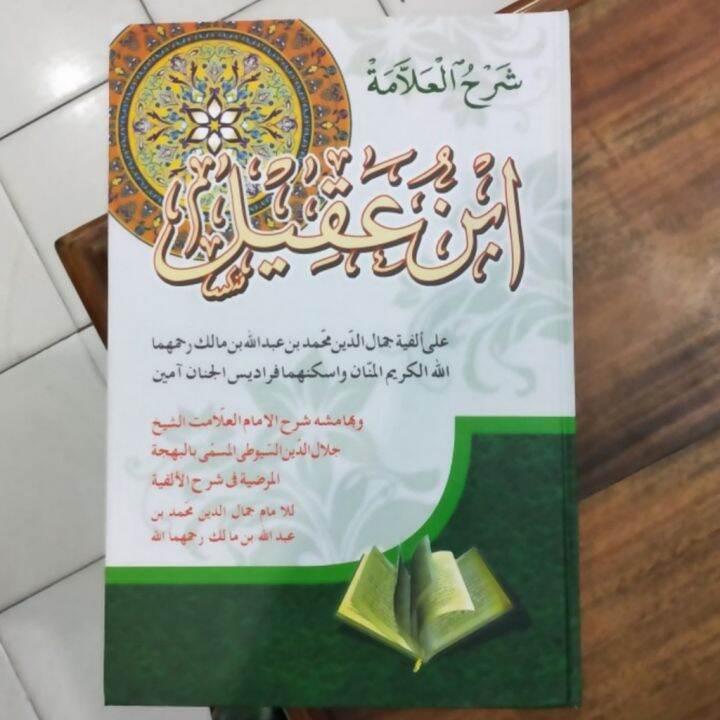 شَرْحُ الْعَلاَّمَةْ
ابْنُ عَقِيْل
على ألفية جمال الدّين محّمد بن عبدالله بن مالك رحمهما
الله الكريم المنّان واسكنهما فراديس الجنان آمين
وبهامشه شرح الامام العلّامت الشيخ
جلال الدّين السّيوطى المسمّى بالبهجة
المرضية فى شرح الألفية
للامام جمال الدين محّمد بن
عبد الله بن مالك رحمهما الله